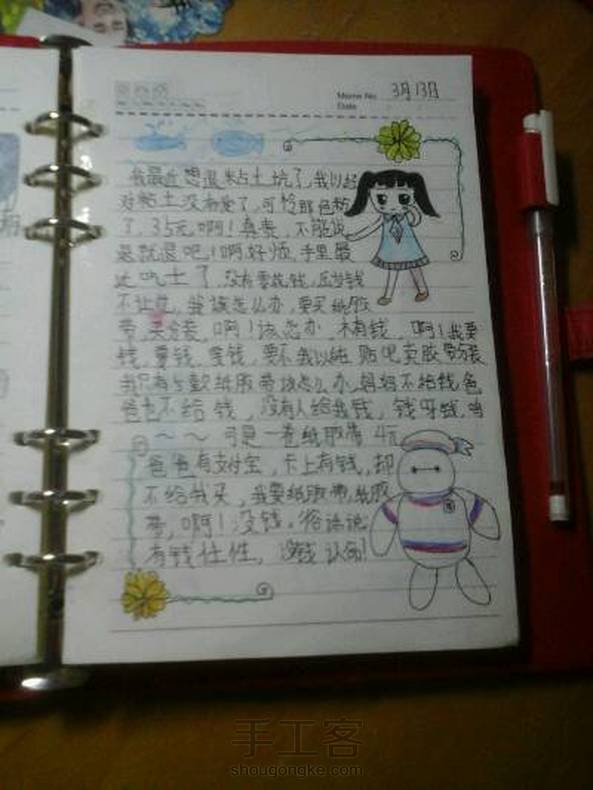 Memo No.
3月13日
Date
我最近想退粘土坑了,我以经
对粘土没有爱了,可怜那色粉
了,35元啊!真贵,不能说
是就退吧!啊好烦,手里最
近吃土了,没有零花钱,压岁钱
不让花,我该怎么办,要买纸胶
带,买分装,啊!该怎办,木有钱,啊!我要
钱,要钱,要钱,要不我以在贴吧卖胶带分装
我只有5款纸胶带该怎么办,妈妈不给钱,爸
爸也不给钱,没有人给我钱,钱呀钱,
~ ~ 可是一卷纸胶带4元
爸爸有支付宝,卡上有钱,却
不给我买,我要纸胶带,纸胶
带,啊!没钱,俗话说
有钱任性,没钱认命!
手工客
shougongke.com